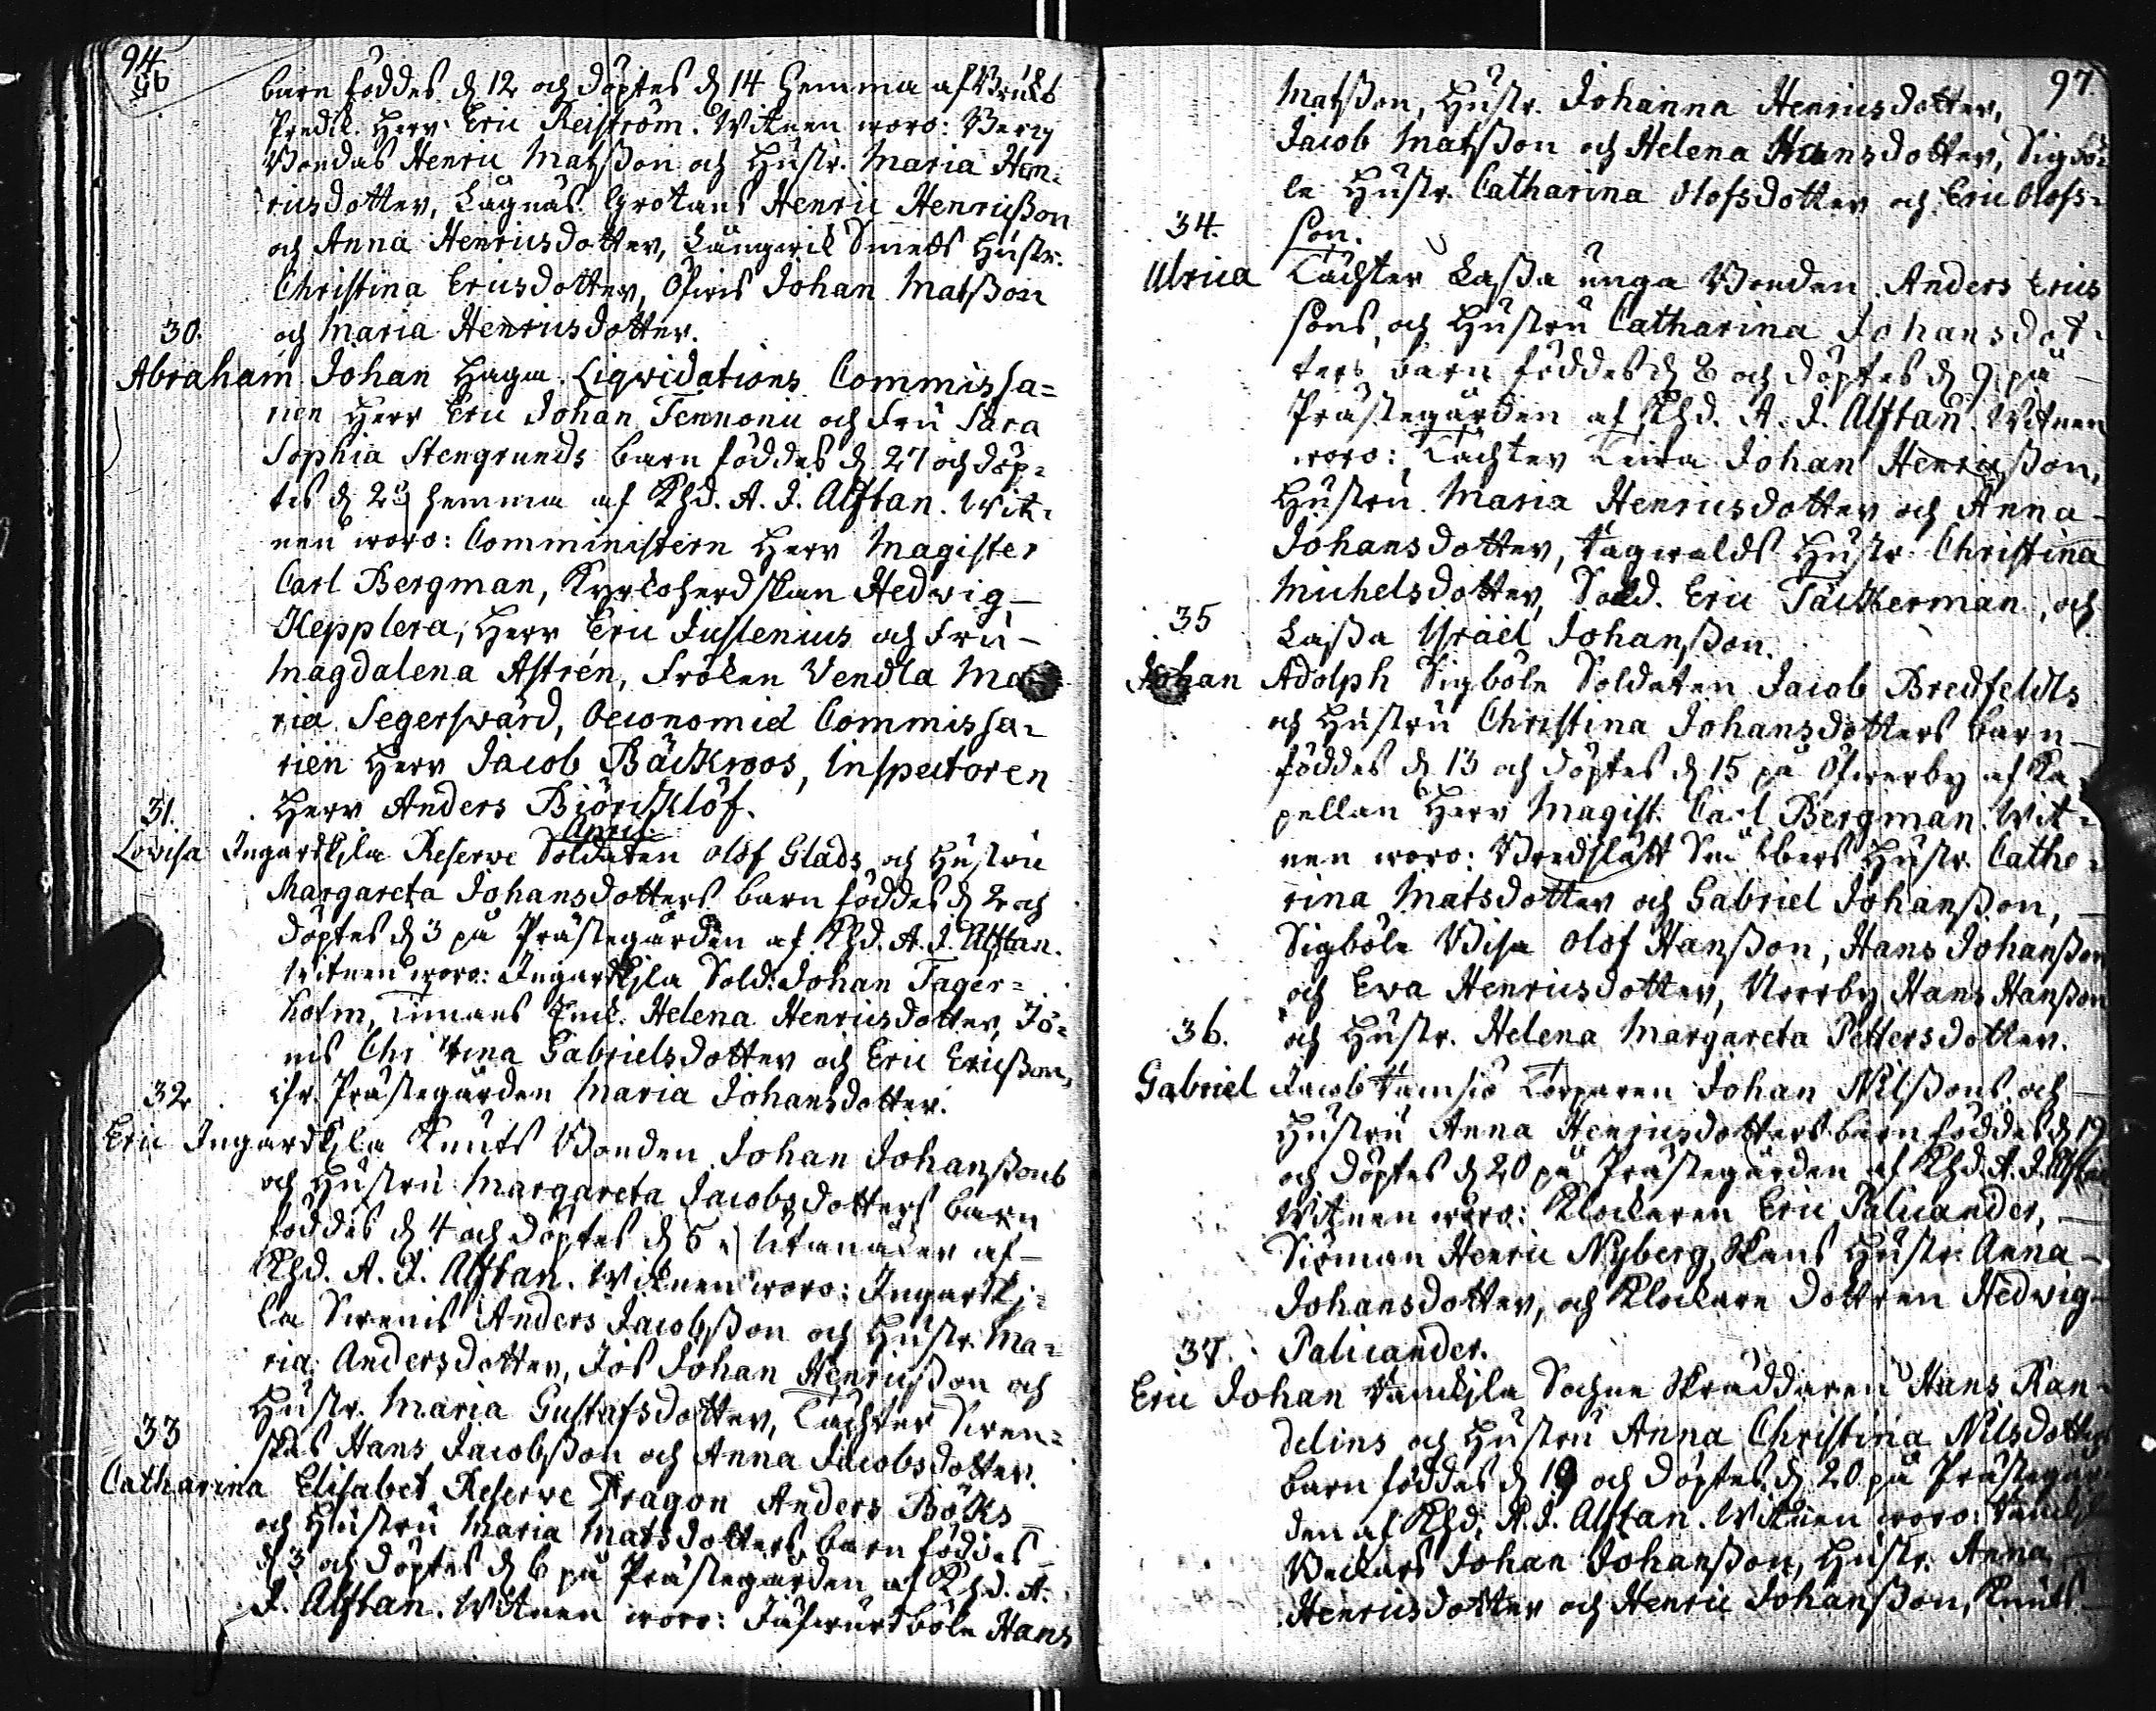 94
96
barn föddes d. 12 och döptes d. 14 hemma af Bruks
Predik. Herr Eric Reiström. Witnen woro: Berg
Bondas Henric Matsson och Hustr. Maria Hen=
ricsdotter, Lagnäs Grotans Henric Henricsson
och Anna Henricsdotter, Långwik Smeds Hustr.
Christina Ericsdotter, Öfwis Johan Matsson
30. och Maria Henricsdotter.
Abraham Johan Liqvidations Commissa=
rien Herr Eric Johan Tennonii och Fru Sara
Sophia Stengrunds barn föddes d. 27 och döp=
tes d. 29 hemma af Khd. A. J. Alftan. Wit=
nen woro: Comministern Herr Magister
Carl Bergman, Kyrkoherdskan Hedwig
Kepplera, Herr Eric Juslenius och Fru
Magdalena Astrén, Fröken Vendla Ma
ria Segerswärd, Oeconomie Commissa=
rien Herr Jacob Bäckroos, Inspectoren
31. Herr Anders Biörcklöf.
April.
Lovisa Ingarskila Reserve Soldaten Olof Glads och Hustru
Margareta Johansdotters barn föddes d. 2 och
döptes d. 3 på Prästegården af Khd. A. J. Alftan.
Witnen woro: Ingarskila Sold. Johan Fager=
holm, Timans Enk. Helena Henricsdotter, Jö=
nis Christina Gabrielsdotter och Eric Ericsson,
32 ifr. Prästegården Maria Johansdotter.
Eric Ingarskila Knuts Bonden Johan Johanssons
och Hustru Margareta Jacobsdotters barn
föddes d. 4 och döptes d. 5 i Utanåker af
Khd. A. J. Alftan. Witnen woro: Ingarski=
la Swenis Anders Jacobsson och Hustr. Ma=
ria Andersdotter, Jös Johan Henricsson och
Hustr. Maria Gustafsdotter, Täckter Swen=
33 skas Hans Jacobsson och Anna Jacobsdotter.
Catharina Elisabet Reserve Dragon Anders Böks
och Hustru Maria Matsdotters barn föddes
d. 3 och döptes d. 6 på Prästegården af Khd. A.
J. Alftan. Witnen woro: Hans
97.
Matsson, Hustr. Johanna Henricsdotter,
Jacob Matsson och Helena Hansdotter, Sigbö=
le Hustr. Catharina Olofsdotter och Eric Olofs=
34. son.
Ulrica Täckter Lassa unga Bonden Anders Erics
sons och Hustru Catharina Johansdot=
ters barn föddes d. 8 och döptes d. 9 på
Prästegården af Khd. A. J. Alftan. Witnen
woro: Täckter Johan Henricsson,
Hustru Maria Henricsdotter och Anna
Johansdotter, Hustr. Christina
Michelsdotter, Sold. Eric Täckerman, och
35 Lassa Israel Johansson.
Johan Adolph Sigböle Soldaten Jacob Bredfeldts
och Hustru Christina Johansdotters barn
föddes d. 13 och döptes d. 15 på Öfwerby af Ka=
pellan Herr Magist. Carl Bergman. Wit=
nen woro: Bredslätt Hustr. Catha=
rina Matsdotter och Gabriel Johansson,
Sigböle Olof Hansson, Hans Johansson
och Ewa Henricsdotter, Norrby Hans Hansson
36. och Hustr. Helena Margareta Pettersdotter.
Gabriel Jacob Torparen Johan Nilssons och
Hustru Anna Henricsdotters barn föddes d. 19
och döptes d. 20 på Prästegården af Khd. A. J. Alftan
Witnen woro: Klockaren Eric Palicander,
Siöman Henric Nyberg, Hustr. Anna
Johansdotter, och Klockare Dottren Hedwig
37. Palicander.
Eric Johan Sochne Skräddaren Hans Ran=
delins och Hustru Anna Christina Nilsdotters
barn föddes d. 19 och döptes d. 20 på Prästegår
den af Khd. A. J. Alftan. Witnen woro:
Johan Johansson, Hustr. Anna
Henricsdotter och Henric Johansson, Knuts